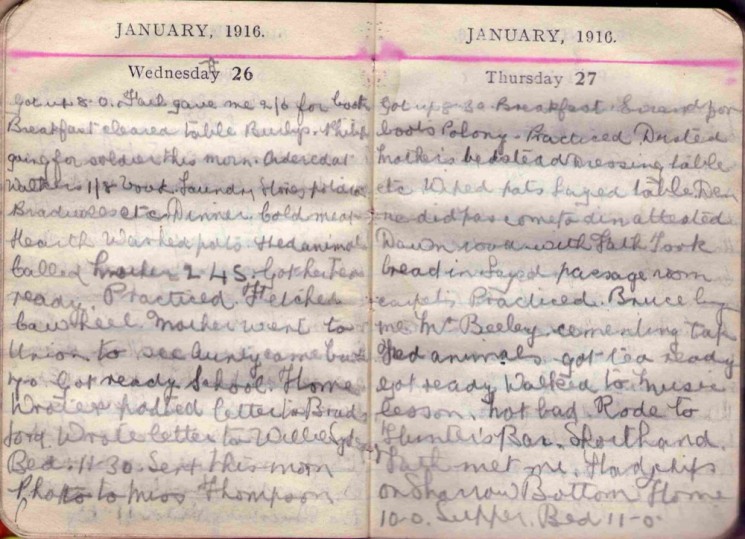 JANUARY, 1916.
Wednesday 26
Got up 8-0. Fath gave me 2/6 for book
Breakfast cleared table Philip
going for soldier this morn. Ordered at
1/8 book. Laundry, Stores,
etc Dinner cold meat
Hearth Washed pots. Fed animals
Called Mother 2 45. Got her tea
ready Practiced. Fetched
Mother went to
Union to see Aunty came back
7-0. Got ready School. Home
Wrote & posted letter to Brad
ford. Wrote letter to Willie
Bed. 11-30. Sent this morn
Photo to Miss Thompson.
JANUARY, 1916.
Thursday 27
Got up 8-30. Breakfast. Scoured por
boots Polony. Practiced Dusted
Mother's bedstead Dressing table
etc Wiped pots Layed table. Din
ne did pas come to din attested
Down road with Fath Took
bread in Layed passage room
carpets Practiced. Bruce by
me. Mr Beeley. cementing tap
Fed animals. got tea ready
Got ready. Walked to Music
lesson. not bad. Rode to
Hunter's Bar. Shorthand.
Fath met me. Had chips
on Sharrow Bottom Home
10-0. Supper. Bed 11-0.